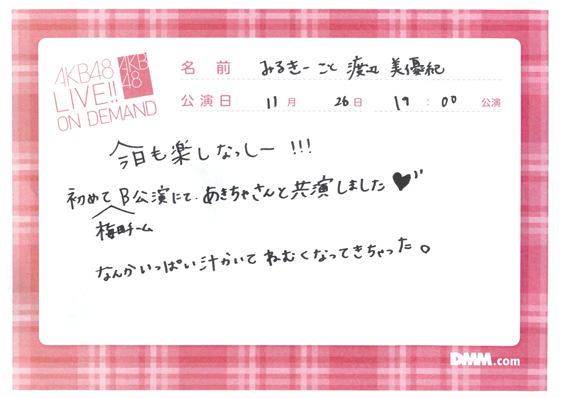 AKB48
LIVE!!
ON DEMAND
AKB
48
名前 みるきーこと 渡辺 美優紀
公演日 11月 26日 19:00 公演
今日も楽しなっしー!!!
初めてB公演にて、あきちゃさんと共演しました♥"
梅田チーム
なんかいっぱい汁かいてねむくなってきちゃった。
DMM.com